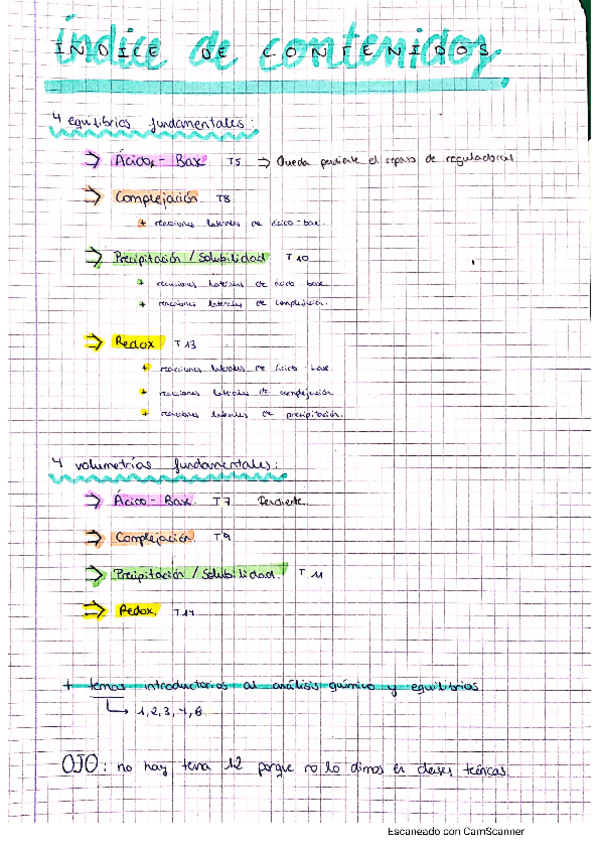 índice de contenidos
INDICE DE CONTENIDOS
4 equilibrios fundamentales:
⇒ Ácido - Base T5 → Queda pendiente el repaso de reguladoras
⇒ Complejación T8
+ reacciones laterales de ácido-base.
⇒ Precipitación / Solubilidad T10
+ reacciones laterales de ácido base.
+ reacciones laterales de complejación.
⇒ Redox T13
+ reacciones laterales de ácido base.
+ reacciones laterales de complejación
+ reacciones laterales de precipitación.
4 volumetrías fundamentales:
⇒ Ácido - Base T7 Pendiente.
⇒ Complejación T9
⇒ Precipitación / Solubilidad. T 11
⇒ Redox. T.14
+ temas introductorios al análisis químico y equilibrios
↳ 1, 2, 3, 4, 6
OJO: no hay tema 12 porque no lo dimos en clases teóricas
Escaneado con CamScanner